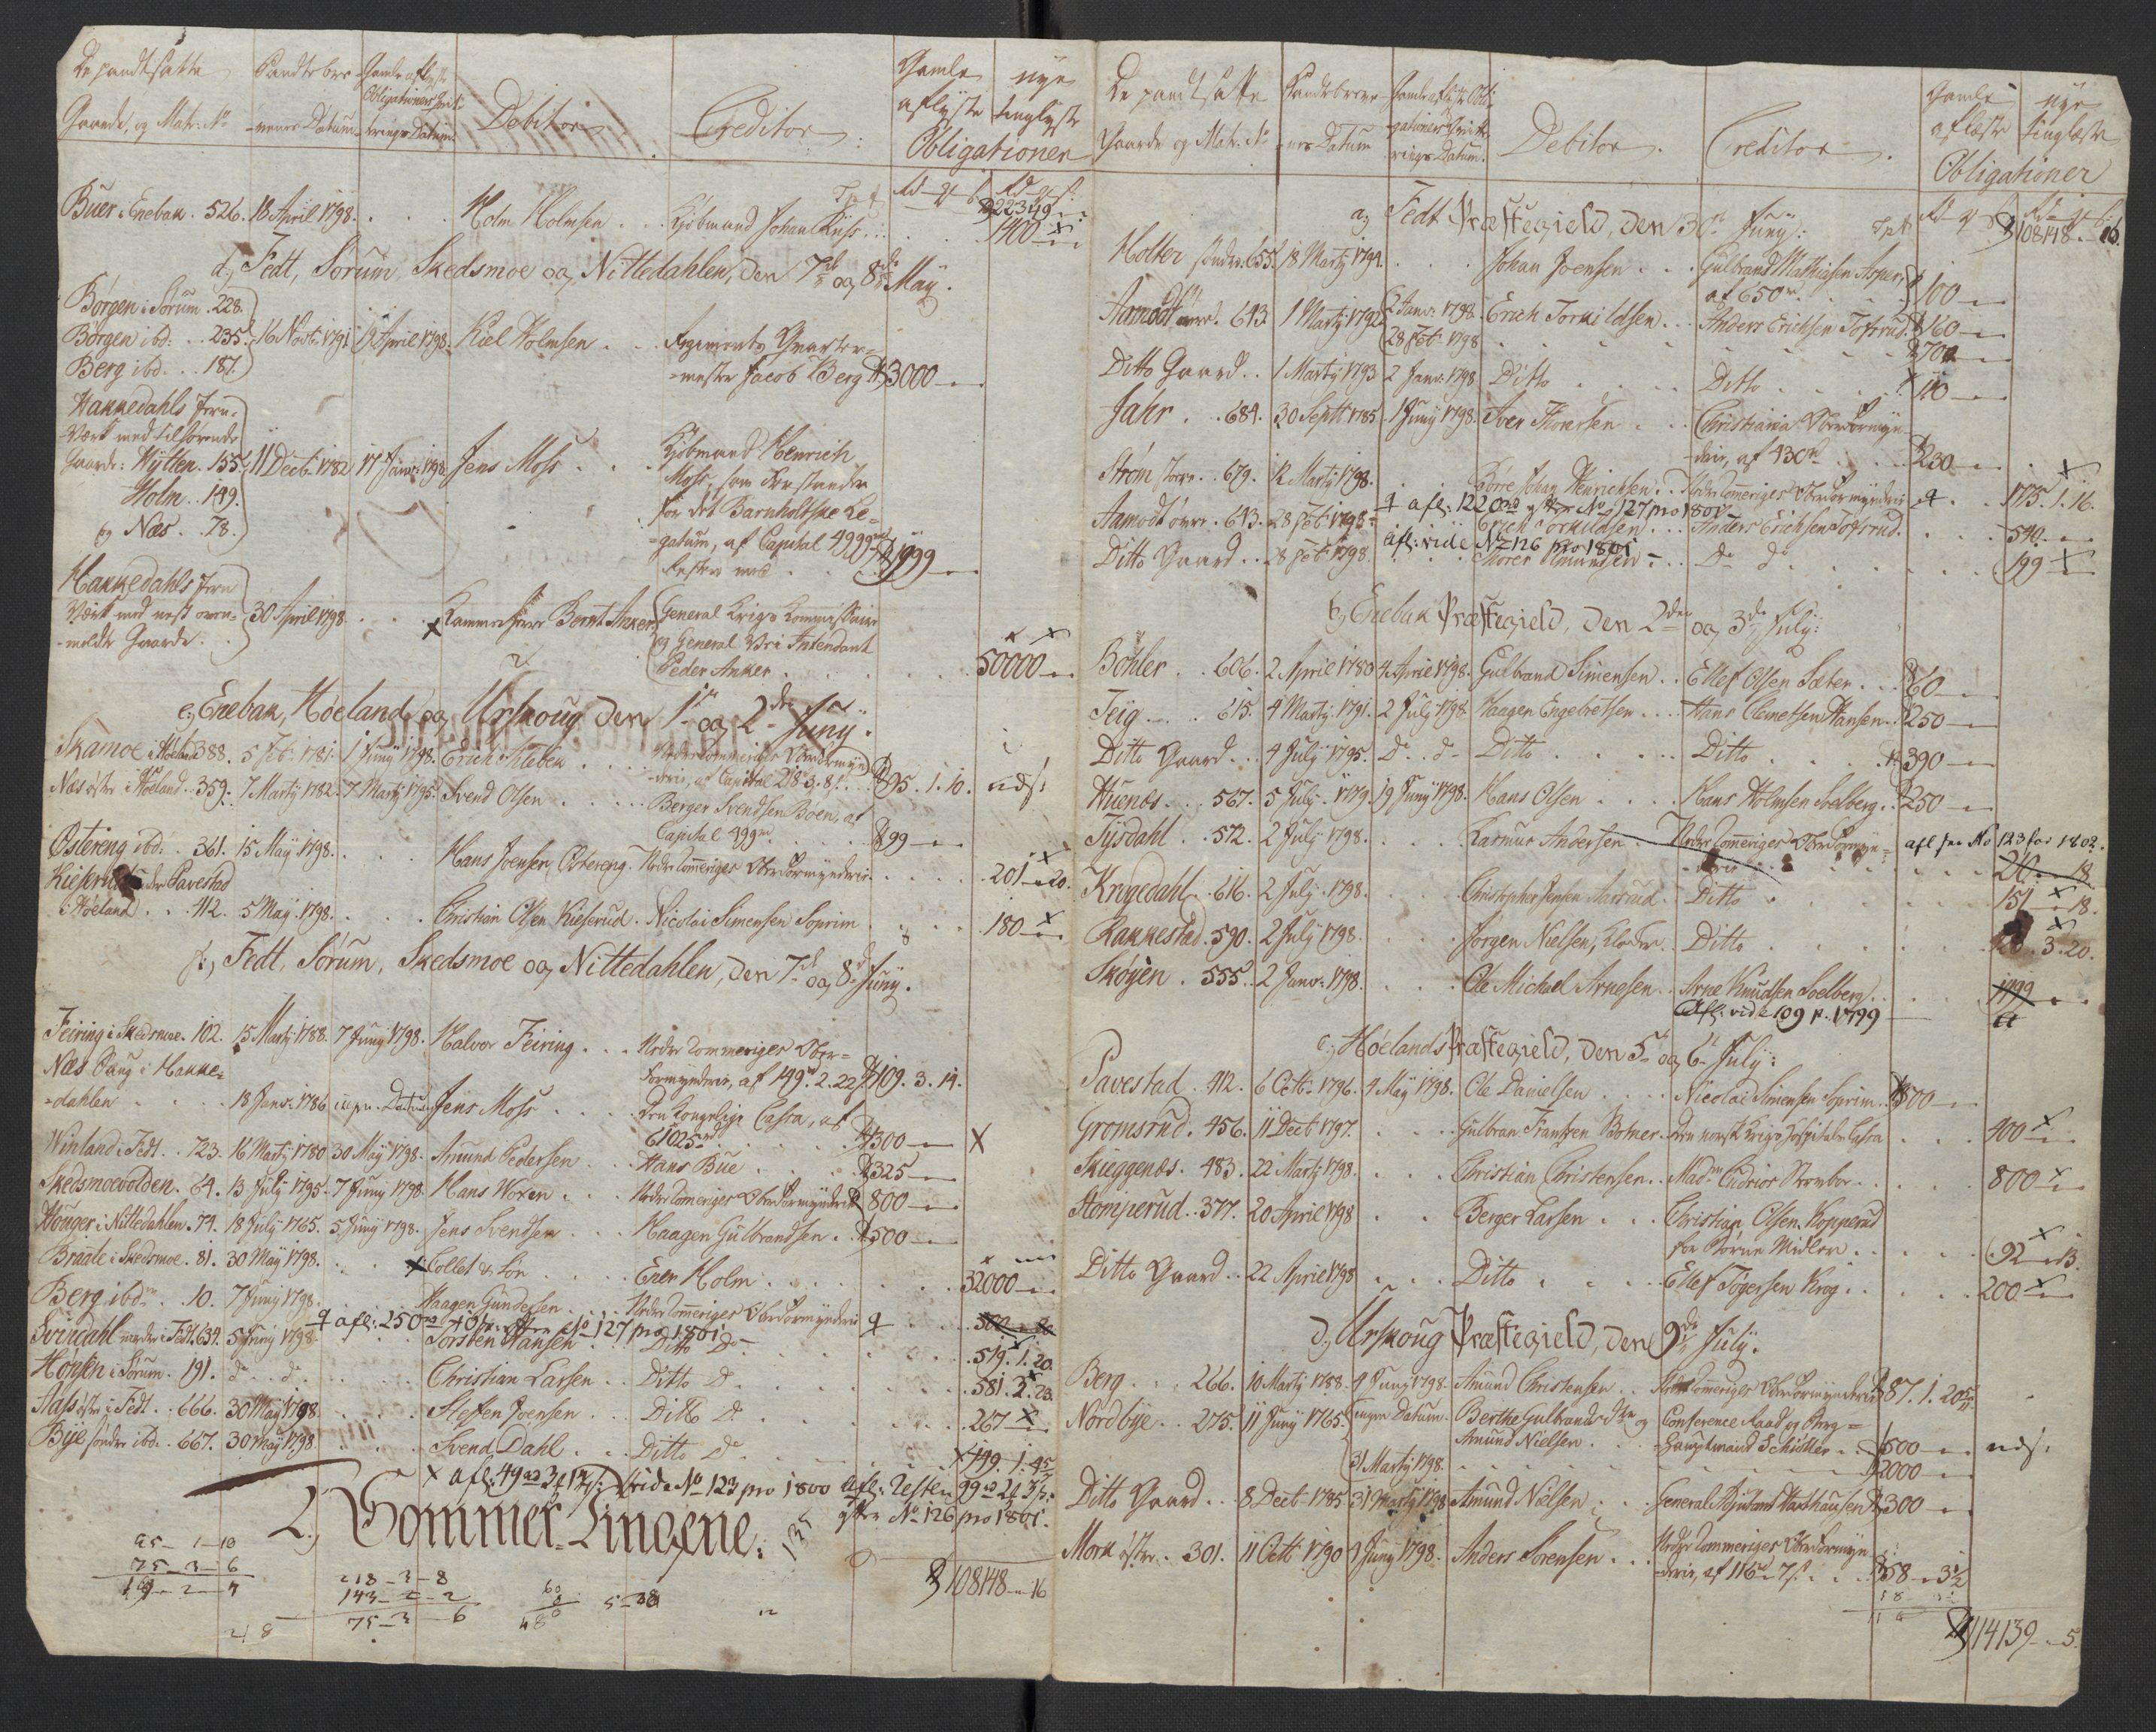 De pandtsatte
Gaarde, og Matr: No
Pandtobre-
-vernes Datum.
Gamle aflyste
Obligationers Qvit-
teringers Datum.
Debitor.
Creditor.
Gamle aflyste
nye tinglyste
Obligationer
Rd q s Rd q s
Tpt 22349
Buer i Enebak. 526. 18 April 1798. . . . Holm Holmsen . . Kjøbmand Johan Russ . . . 1400
d, Fedt, Sørum, Skedsmoe og Nittedahlen, den 7de og 8de May.
Børgen i Sørum. 228.
Børgen ibd: . . 235. 16 Novb: 1791. 19 April 1798. Kiel Holmsen . . Regiments Qvarter=
Berg ibd. . . 187. -mester Jacob Berg 3000
Hakkedahls Jern-
-Værk med tilhørende
Gaarde: Hytten. 155. 11 Decb: 1782 17 Janv: 1798. Jens Moss . . Kjøbmand Henrich
Holm. . 149. Moss, som Forstander
og Næs. . 78. for det Barnholtske Le-
-gatum, af Capital 4999rd
Resten med . . . 1999
Hakkedahls Jern
Værk med nest oven- 30 April 1798. . . Kammerherre Bernt Anker. General Krigs Kommissair
-meldte Gaarde. og General Vei Intendant
Peder Anker . . . 50000
e, Enebak, Høeland og Urskoug den 1te og 2den Juny.
Skamoe i Høeland 388. 5 Feb: 1781. 1 Juny 1798. Erich Kileben . . . Nedre Rommeriges Overformyn-
-derie, af Capital 218. 3. 8 s. . 95. 1. 10. nds:
Næs østre i Høeland. 359. 7 Marty 1782. 7 Marty 1795. Svend Olsen . . . Berger Svendsen Boen, af
Capital 499rd . . . 99
Østereng ibd. . 361. 15 May 1798. . . . Hans Joensen Østereng. Nedre Rommeriges Overformynderie . . . 201 20.
Kieserud under Pavestad
i Høeland . . 412. 5 May. 1798. . . Christian Olsen Kieserud. Nicolai Simensen Soprim . . . 180
f, Fedt, Sørum, Skedsmoe og Nittedahlen, den 7de og 8de Juny.
Feiring i Skedsmoe. 102. 15 Marty 1788. 7 Juny 1798. Halvor Feiring . . . Nedre Rommeriges Over=
Formynderie, af 149rd 2. 22 s 109. 3. 14.
Næs Bruug i Hakke=
-dahlen . . . . 18 Janv: 1786 Jens Moss . . . Den Kongelige Cassa, af
61025rd . . . 300 X
Winland i Fedt. . 723. 16 Marty 1780 30 May 1798. Amund Pedersen . . Hans Bue . . . 325
Skedsmoevolden. 64. 13 July 1795. 7 Juny 1798. Hans Woxen . . . Nedre Rommeriges Overformynderie 800
Houger i Nittedahlen. 74. 18 July 1765. 5 Juny 1798. Jens Svendsen . . . Haagen Gulbrandsen . 500
Braate i Skedsmoe. 81. 30 May 1798. . . Collet & Søn . . . Even Holm . . . . 32000
Berg ibdm. . 10. 7 Juny 1798. . . . Haagen Gundersen . . Nedre Rommeriges Overformynderie
afl: 250rd efter No 127 pro 1801.
Svindahl nedre i Fedt 634. 5 Juny 1798 . . . Torsten Hansen . . Ditto Do . . . 519. 1. 20.
Hønsen i Sørum. 191. d . . d . . . . Christian Larsen . . Ditto D . . . 581. 2. 23.
Aass østre i Fedt . . 666. 30 May 1798. . . . Steffen Joensen . . . Ditto D . . . 267
Bye søndre ibd. . 667. 30 May 1798. . . . Svend Dahl . . . Ditto Do . . . 149. 1. 4
afl: 49rd vide No 123 pro 1800 afl: Resten 99rd
efter No 126 pro 1801.
2, Sommer-Tingene.
95 — 1 — 10
75 — 3 — 6
218 — 3 — 8
143 — 2 — 2
75 — 3 — 6
108148 16
De pandtsatte
Gaarde og Matr: No
Pandtobreve-
-nes Datum
Gamle aflyste Obli-
-gationers Qvitte-
-ringers Datum.
Debitor.
Creditor.
Gamle aflæste
nye tinglæste
Obligationer
Rd q s Rd q s
a, Fedt Præstegield, den 30te Juny: Tpt 108148. 16.
Holter søndre. 655. 18 Marty 1794. . . . Johan Joensen . . . Gulbrand Mathiesen Asper,
af 650rd. . . 100
Aamodt øvre. 643 1 Marty 1792. 2 Janv: 1798. Erich Torkildsen . . Anders Erichsen Tofsrud. 160
28 Feb: 1798 . . . 700
Ditto Gaard . . 1 Marty 1793 2 Janv: 1798 Ditto . . . Ditto . . . 110
Jahr . . 684. 30 Septb 1785. 1 Juny 1798. Iver Thoresen . . Christiania Overformyn-
-derie, af 430rd . . . 230
Strøm store . . 679. 12 Marty 1798. . . Børre Johan Henrichsen . . Nedre Rommeriges Overformynderie . . 175. 1. 16.
afl: 122 efter No 127 pro 1801
Aamodt øvre. 643. 28 Feb: 1798. . . Erich Torkildsen . . . Anders Erichsen Tofsrud . . . 540.
afl: vide No 126 pro 1801
Ditto Gaard . . 28 Feb: 1798. . . Thorer Amundsen . . Do d . . . 199
b, Enebak Præstegield, den 2den og 3de July:
Bøhler . . 606. 2 April 1780 4 April 1798. Gulbrand Simensen . . Ellef Olsen Sæter . . . 60
Teig . . . 615. 4 Marty 1791. 2 July 1798 Haagen Engebretsen . . . Hans Clemetsen Hansen . 250
Ditto Gaard . . 4 July 1795. Do . d Ditto . . . Ditto . . . 390
Huenæs . . 567. 5 July . 1779. 19 Juny 1798. Hans Olsen . . . Hans Holmsen Soelberg . 250
Tysdahl . . 572. 2 July 1798. . . . Rasmus Andersen . Nedre Rommeriges Overformyn-
afl see No 123 for 1802.
-derie . . . 18
Krogedahl . . 616. 2 July . 1798. . . . Christopher Jensen Aarrud . . Ditto . . . 151 18.
Rakkestad. 590. 2 July 1798. . . . Jørgen Nielsen, Kloster . . Ditto . . . 3. 20.
Skøyen . 555. 2 Janv: 1798. . . . Ole Michael Arnesen . . Arne Knudsen Soelberg . . . 1799
Afl: vide 109 p. 1799
c, Høelands Præstegield, den 5te og 6te July:
Pavestad. 412. 6 Octb: 1796. 4 May 1798. Ole Danielsen . . . Nicolai Simensen Soprim . . 800
Gromsrud. 456. 11 Decb 1797. . . . Gulbran Frantzen Botner. Den norske Krigs Hospitals Cassa . . . 400
Skieggenæs. 483. 22 Marty 1798. . . . Christian Christensen . . Madm Cidrior Strombor . . . 800
Homperud. 377. 20 April 1798 . . Berger Larsen . . . Christian Olsen Kopperud
for Børne Midler . . . 92 13.
Ditto Gaard . . 22 April 1798 . . Ditto . . . Ellef Tøgersen Krog . . . 200
d, Urskoug Præstegield, den 9de July.
Berg . . . 266. 10 Marty 1758. 4 Juny 1798. Amund Christensen . . Nedre Rommeriges Overformynderie 87. 1. 20
Nordbye . . 275. 11 Juny 1765. ingen Datum. Berthe Gulbrandsdtr og Conference Raad og Berg=
Amund Nielsen . . . -Hauptmand Schiøtler . . 1500 nds:
31 Marty 1798. . . . 2000
Ditto Gaard . . 8 Decb 1785 31 Marty 1798 Amund Nielsen . . . General Adjutant Waldhausen 300
Mork østre . . 301. 11 Octb 1790 9 Juny 1798. Anders Sørensen . . . Nedre Rommeriges Overformyn
-derie, af 116rd 7 s. . . 58 3½
114139 5.